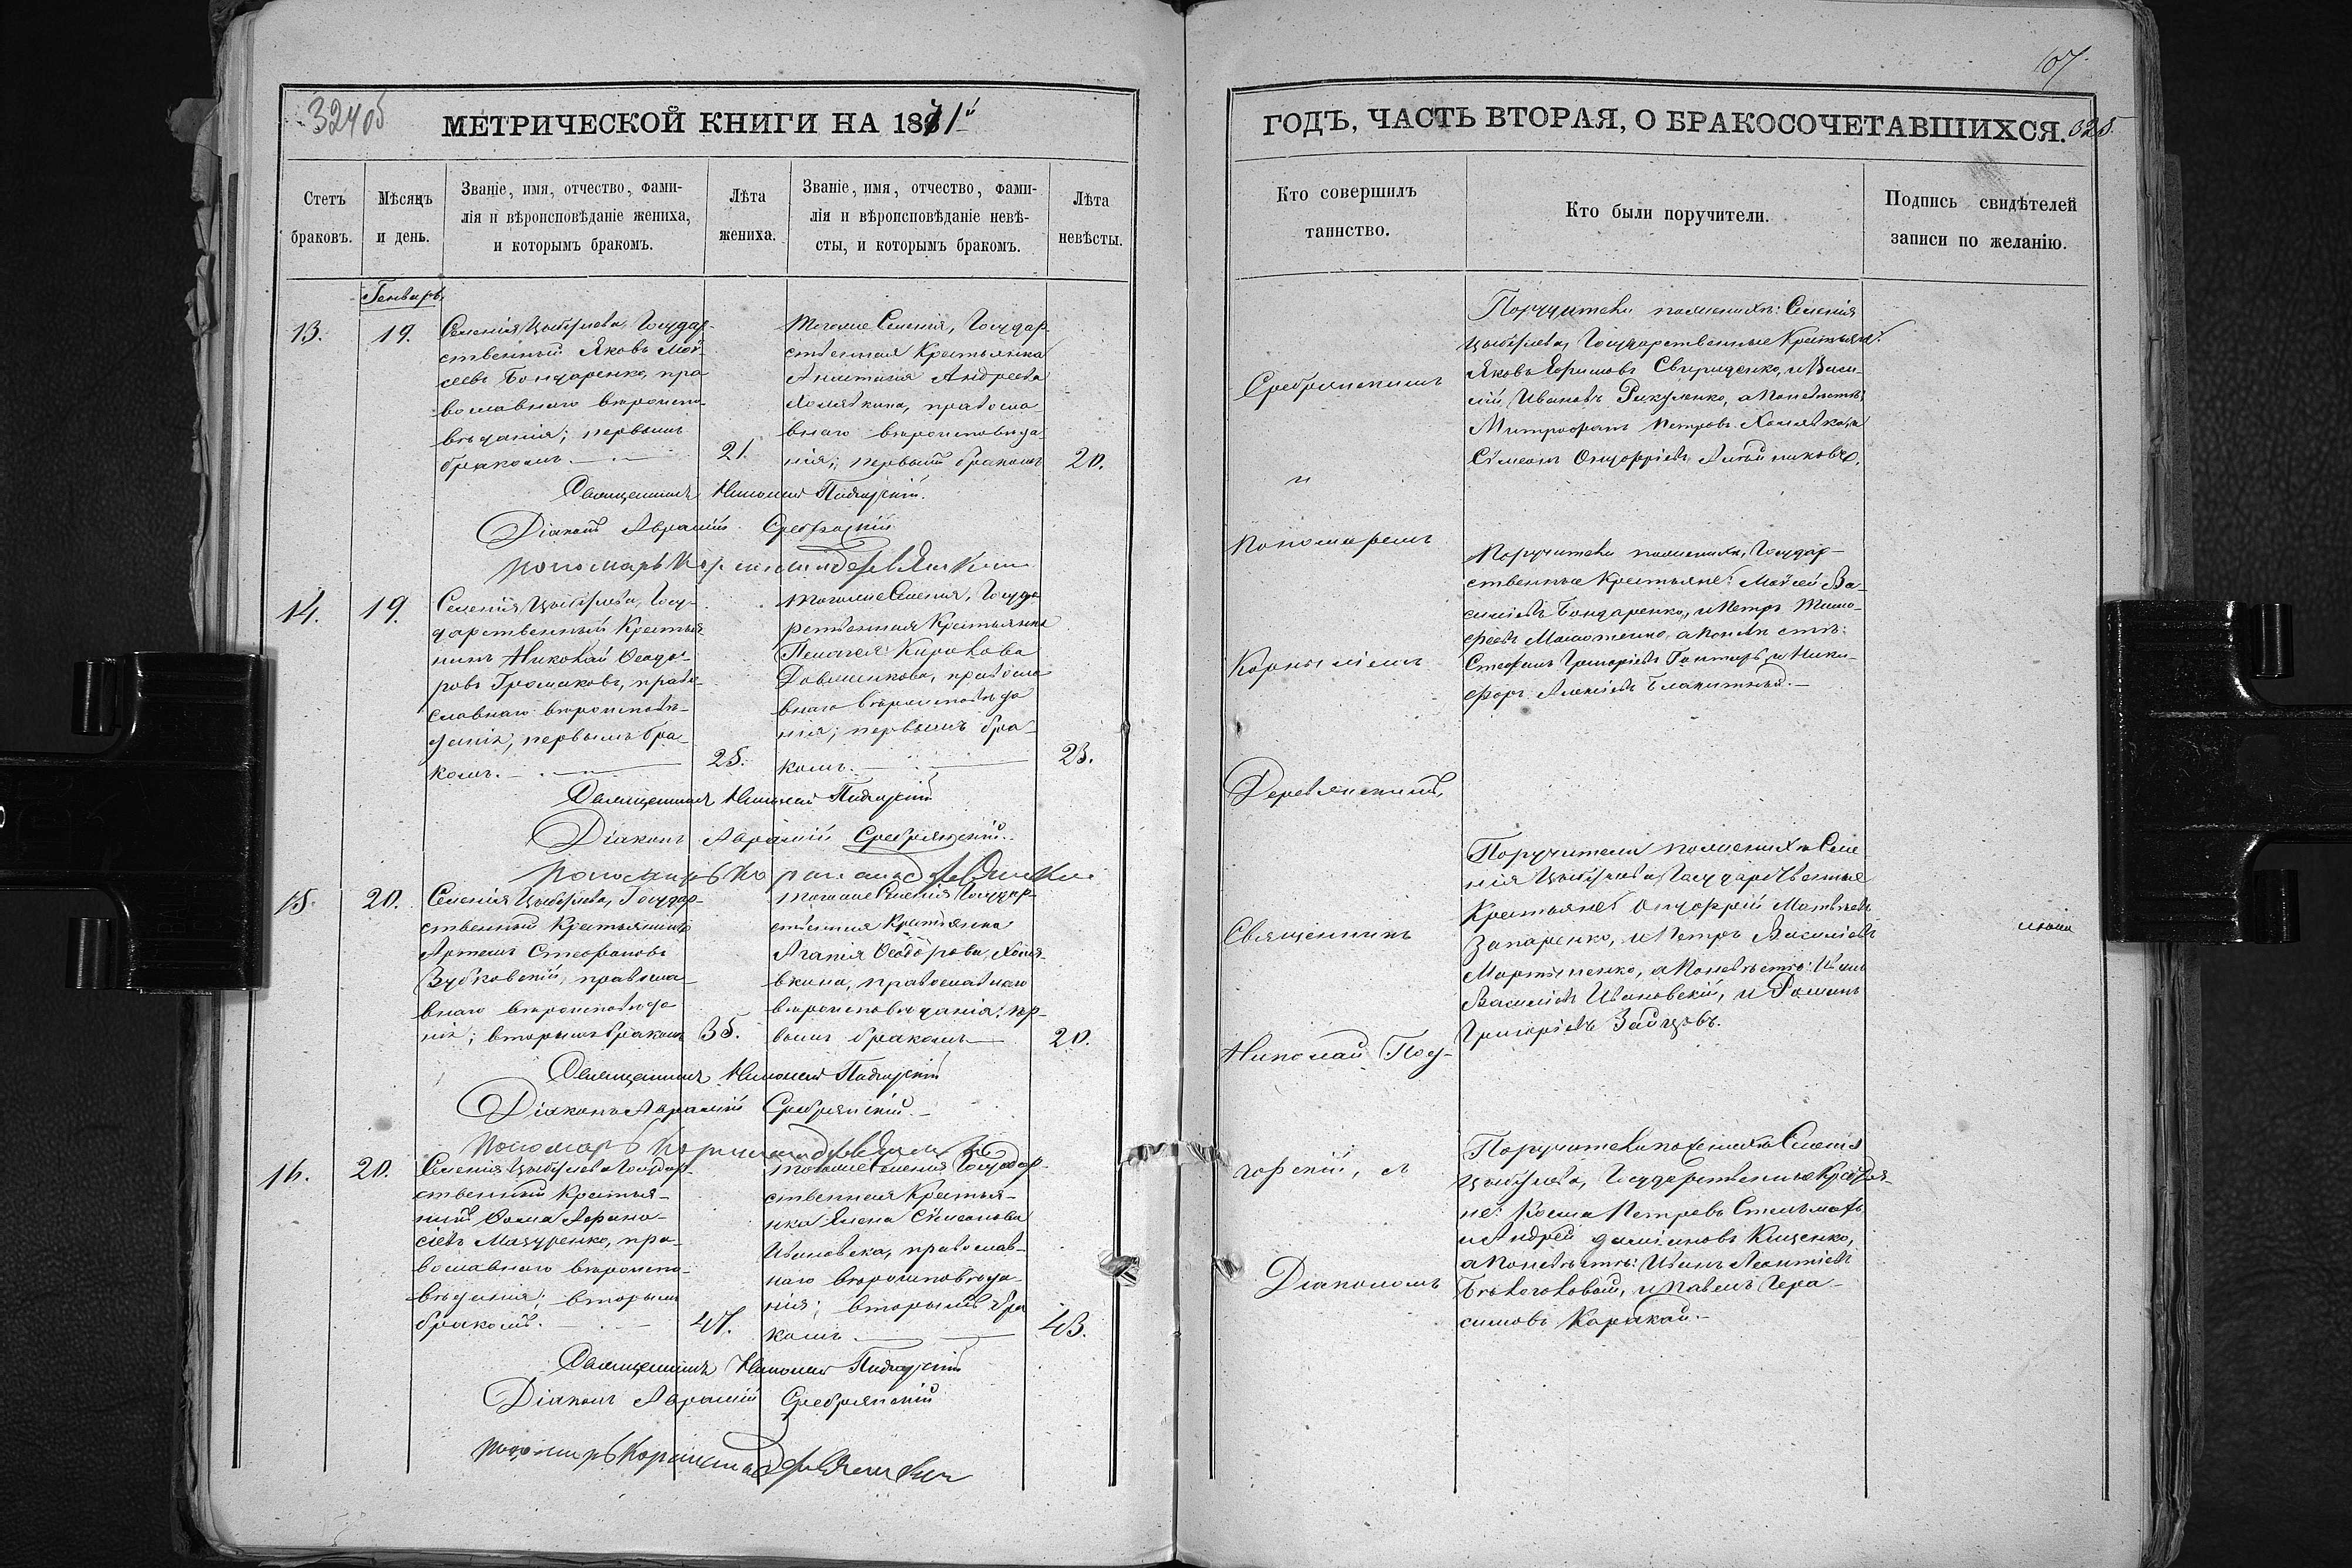 324об
МЕТРИЧЕСКОЙ КНИГИ НА 1871й
Счетъ браковъ.
Мѣсяцъ и день.
Званіе, имя, отчество, фами-
лія и вѣроисповѣданіе жениха,
и которымъ бракомъ.
Лѣта
жениха.
Званіе, имя, отчество, фами-
лія и вѣроисповѣданіе невѣ-
сты, и которымъ бракомъ.
Лѣта
невѣсты.
Генварь
13.
19.
Селенія Цыбулева, Государ-
ственный Яковъ Мой-
сеевъ Бондаренко, пра
вославнаго вѣроиспо-
вѣданія; первымъ
бракомъ.
21.
тогоже Селенія, Государ-
ственная Крестьянка
Анастасія Андреева
Хомяткина, правосла
внаго вѣроисповѣда
нія; первымъ бракомъ
20.
Священникъ Николай Подгорскій.
Діаконъ Аврамій Сребрянскій
пономарь Корнилій Деревянкинъ
14.
19.
Селенія Цыбулева, Госу-
дарственный Крестья-
нинъ Николай Ѳеодо-
ровъ Громаковъ, право-
славнаго вѣроисповѣ-
данія, первымъ бра-
комъ.
25.
тогоже Селенія, Госуда
рственная Крестьянка
Пелагея Кирокова
Довженкова, правосла
внаго вѣроисповѣда
нія; первымъ бра-
комъ.
23.
Священникъ Николай Подгорскій
Діаконъ Аврамій Сребрянскій.
пономарь Корнилій Деревянкинъ
15.
20.
Селенія Цыбулева, Государ-
ственный Крестьянинъ
Артемъ Стефановъ
Зубковскій, правосла-
внаго вѣроисповѣда
нія; вторымъ бракомъ
35.
тогоже Селенія Государ-
ственная Крестьянка
Агафія Ѳеодорова, Хомя-
вкина, православнаго
вѣроисповѣданія; пер-
вымъ бракомъ
20.
Священникъ Николай Подгорскій
Діаконъ Аврамій Сребрянскій.
Пономарь Корнилій Деревянкинъ
16.
20.
Селенія Цыбулева Государ-
ственный Крестья-
нинъ Ѳома Афана-
сіевъ Мазуренко, пра-
вославнаго вѣроиспо-
вѣданія; вторымъ
бракомъ.
47.
тогоже Селенія Государ-
ственная Крестья-
нка Елена Сѵмеонова
Ивановска, православ-
наго вѣроисповѣда-
нія; вторымъ бра
комъ.
43.
Священникъ Николай Подгорскій
Діаконъ Аврамій Сребрянскій
пономарь Корнилій Деревянкинъ
107
ГОДЪ, ЧАСТЬ ВТОРАЯ, О БРАКОСОЧЕТАВШИХСЯ.
325.
Кто совершилъ
таинство.
Кто были поручители.
Подпись свидѣтелей
записи по желанію.
Сребрянскимъ
и
Пономаремъ
Корниліемъ
Деревянкинымъ,
Священникъ
Николай Под-
горскій, съ
Діакономъ
Поручители пожениху: Селенія
Цыбулева, Государственные Крестьяне:
Яковъ Ефимовъ Свириденко, и Васи-
лій Ивановъ Рикуленко, а поневѣстѣ:
Митрофанъ Петровъ Хомявкинъ
Сѵмеонъ Онуфріевъ
Поручители пожениху, Государ-
ственные Крестьяне: Мойсей Ва-
силіевъ Бондаренко, и Петръ Тимо-
феевъ а поневѣстѣ:
Стефанъ Григоріевъ Гонтарь, и Ники-
форъ Алексіевъ Блакитный.
Поручители пожениху Селе
нія Цыбулева, Государственные
Крестьяне: Онуфрій Матвѣевъ
Запаренко, и Петръ Васильевъ
Мартыненко, а поневѣстѣ: Иванъ
Васильевъ Ивановскій, и Романъ
Григоріевъ Зайцовъ.
Поручители пожениху Селенія
Цыбулева, Государственные Крестья-
не: Косма Петровъ Стельмахъ
и Андрей Даміановъ Кищенко,
а поневѣстѣ: Иванъ Леонтіевъ
Бѣлоголовый, и Павелъ Гера-
симовъ Каракай.